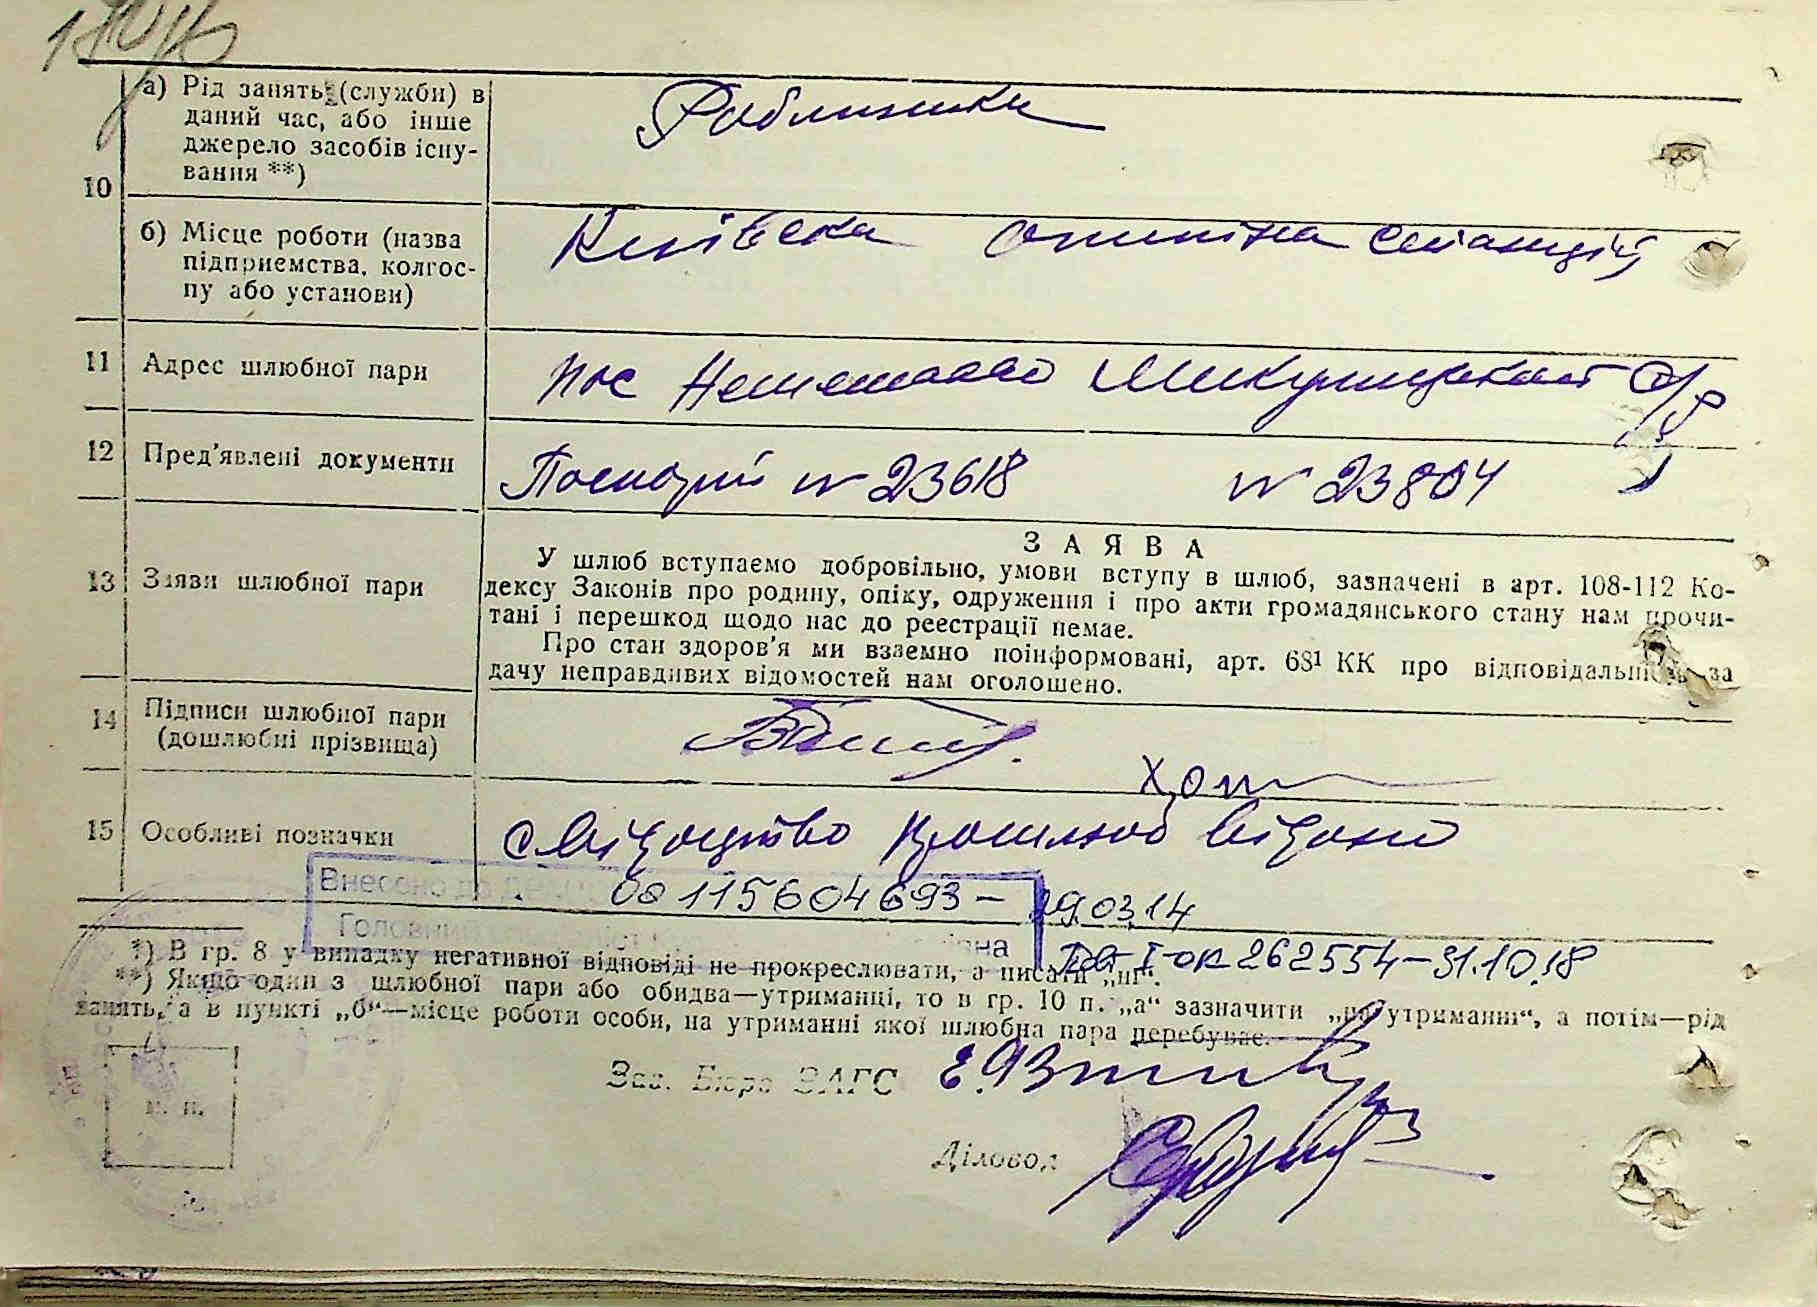 а) Рід занять (служби) в
даний час, або інше
джерело засобів існу-
вання **)
10
б) Місце роботи (назва
підприємства, колгос-
пу або установи)
Київска станції
11 Адрес шлюбної пари
пос
12 Пред'явлені документи
№ 23618 № 23804
З А Я В А
13 Заяви шлюбної пари
У шлюб вступаємо добровільно, умови вступу в шлюб, зазначені в арт. 108-112 Ко-
дексу Законів про родину, опіку, одруження і про акти громадянського стану нам прочи-
тані і перешкод щодо нас до реєстрації немає.
Про стан здоров'я ми взаємно поінформовані, арт. 68¹ КК про відповідальність за
дачу неправдивих відомостей нам оголошено.
14 Підписи шлюбної пари
(дошлюбні прізвища)
15 Особливі позначки
Свідоцтво про шлюб видано
Внесено до
00115604693 – 29.03.14
I-ОК 262554 – 31.10.18
*) В гр. 8 у випадку негативної відповіді не прокреслювати, а писати „ні“.
**) Якщо один з шлюбної пари або обидва—утриманці, то в гр. 10 п. „а“ зазначити „на утриманні“, а потім—рід
занять, а в пункті „б“—місце роботи особи, на утриманні якої шлюбна пара перебуває.
м. п.
Зав. Бюро ЗАГС
Діловод